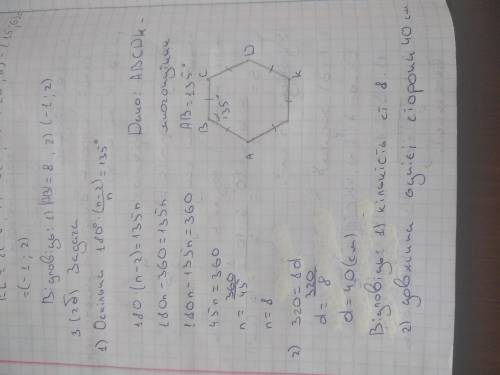 = (-1; 2)
Відповідь: 1) = 8, 2) (-1; 2)
3 (2б) Задача
1) Оскільки 180° (n-2) / n = 135°
180 (n-2) = 135n
180n - 360 = 135n
180n - 135n = 360
45n = 360
n = 360 / 45
n = 8
Дано: ABCDK -
многокутник
AB = 135°
A
B
C
D
K
135°
2) 320 = 8d
d = 320 / 8
d = 40 (см)
Відповідь: 1) кількість ст. 8.
2) довжина однієї сторони 40 см